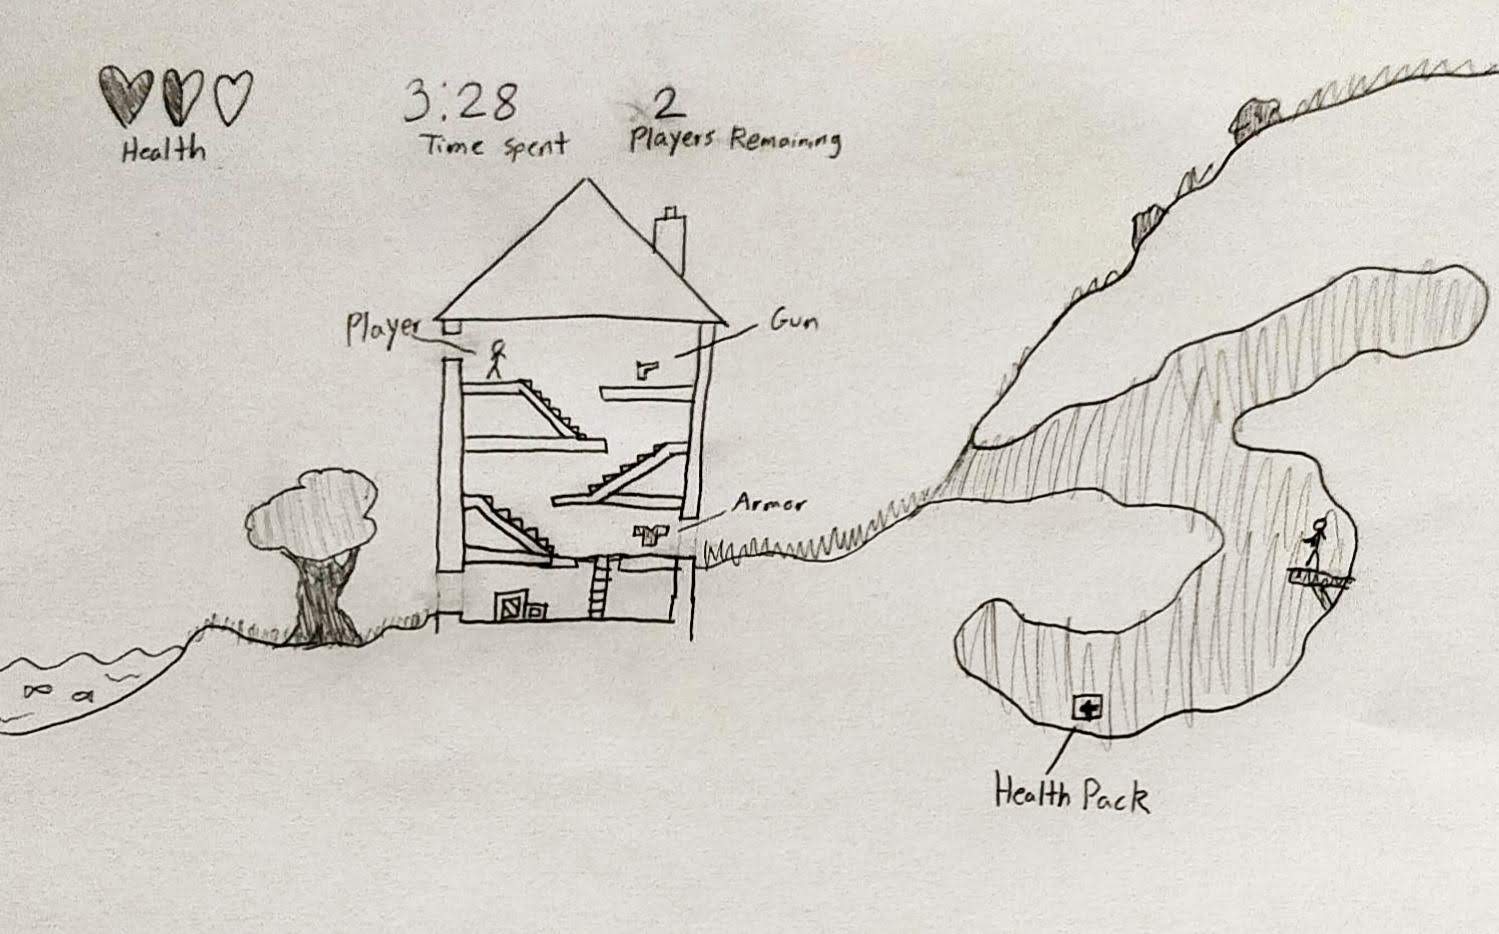 3:28
2
Health
Time spent
Players Remaining
Player
Gun
Armor
Health Pack